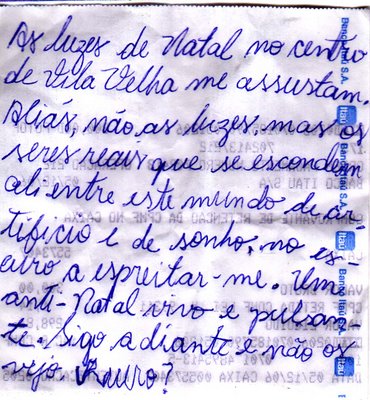 As luzes de Natal no centro
de Vila Velha me assustam.
Aliás, não as luzes, mas os
seres reais que se escondem
ali entre este mundo de ar-
tifício e de sonho, no es-
curo a espreitar-me. Um
anti-Natal vivo e pulsan-
te. Sigo adiante e não os
vejo. Juro?
Banco Itaú S.A.
Itaú
Banco Itaú S.A.
Itaú
Banco Itaú S.A.
Itaú